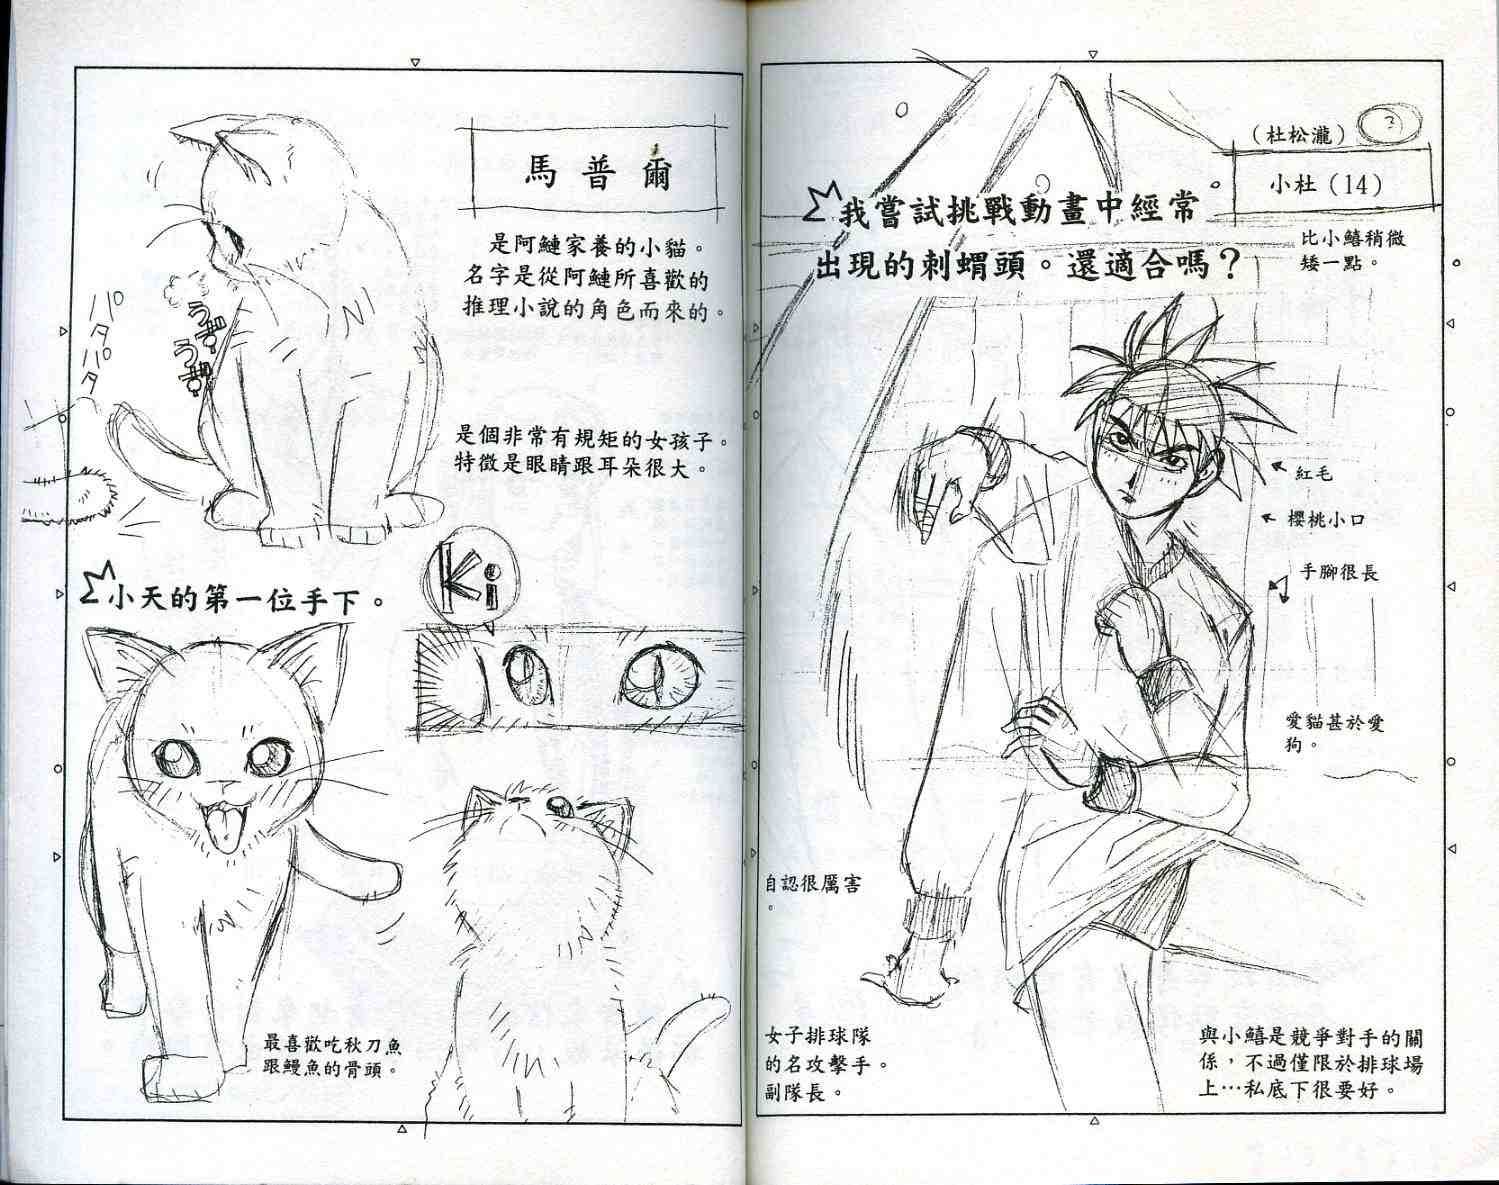 馬普爾
是阿鰱家養的小貓。
名字是從阿鰱所喜歡的
推理小說的角色而來的。
パタパタ
うず
うず
是個非常有規矩的女孩子。
特徵是眼睛跟耳朵很大。
小天的第一位手下。
Ki
最喜歡吃秋刀魚
跟鰻魚的骨頭。
（杜松瀧）
3
小杜（14）
我嘗試挑戰動畫中經常
出現的刺蝟頭。還適合嗎？
比小鱚稍微
矮一點。
紅毛
櫻桃小口
手腳很長
愛貓甚於愛
狗。
自認很厲害
。
女子排球隊
的名攻擊手。
副隊長。
與小鱚是競爭對手的關
係，不過僅限於排球場
上…私底下很要好。